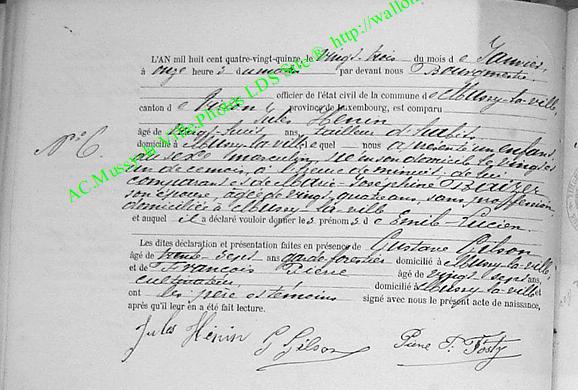 AC.Mussy-la-Ville.Photos LDS Site® http://wallon
L'AN mil huit cent quatre-vingt-quinze, le vingt trois du mois de Janvier,
à onze heures du par devant nous Bourgmestre
officier de l'état civil de la commune de Mussy-la-ville,
canton de Virton, province de Luxembourg, est comparu
Jules Hénin
N° 6.
âgé de vingt huit ans, tailleur d'habits
domicilié à Mussy la ville lequel nous a présenté un enfant
du sexe masculin, né en son domicile le vingt et
un de ce mois, à heure de minuit, de lui
comparant et de Marie Joséphine
son épouse, âgée de vingt quatre ans, sans profession
domiciliée à Mussy-la-ville
et auquel il a déclaré vouloir donner les prénoms de Emile Lucien
Les dites déclaration et présentation faites en présence de Gustave Gilson
âgé de trente-sept ans garde forestier domicilié à Mussy-la-ville,
et de François Pierre âgé de vingt sept ans,
cultivateur, domicilié à Mussy-la-ville
ont les père et témoins signé avec nous le présent acte de naissance,
après qu'il leur en a été fait lecture.
Jules Hénin G Gilson Pierre F. Fosty